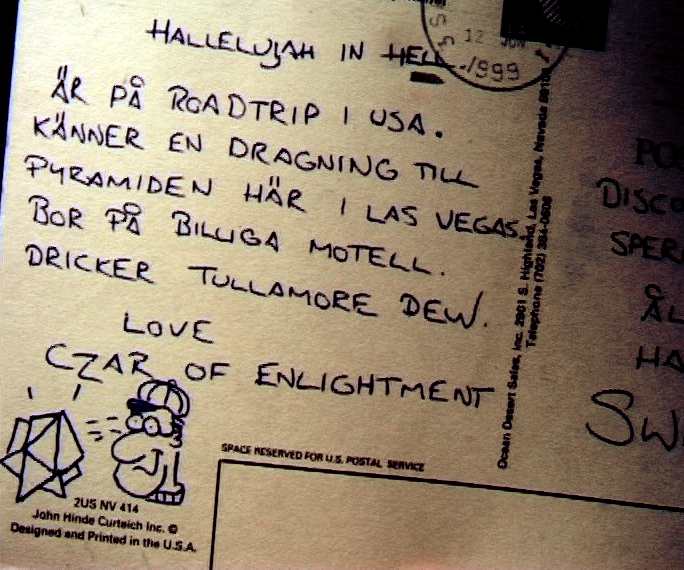 HALLELUJAH IN HELL
12 JUN
1999
ÄR PÅ ROADTRIP I USA.
KÄNNER EN DRAGNING TILL
PYRAMIDEN HÄR I LAS VEGAS.
BOR PÅ BILLIGA MOTELL.
DRICKER TULLAMORE DEW.
LOVE
CZAR OF ENLIGHTMENT
2US NV 414
John Hinde Curteich Inc. ©
Designed and Printed in the U.S.A.
SPACE RESERVED FOR U.S. POSTAL SERVICE
Ocean Desert Sales, Inc. 2901 S. Highland, Las Vegas, Nevada
Telephone (702)